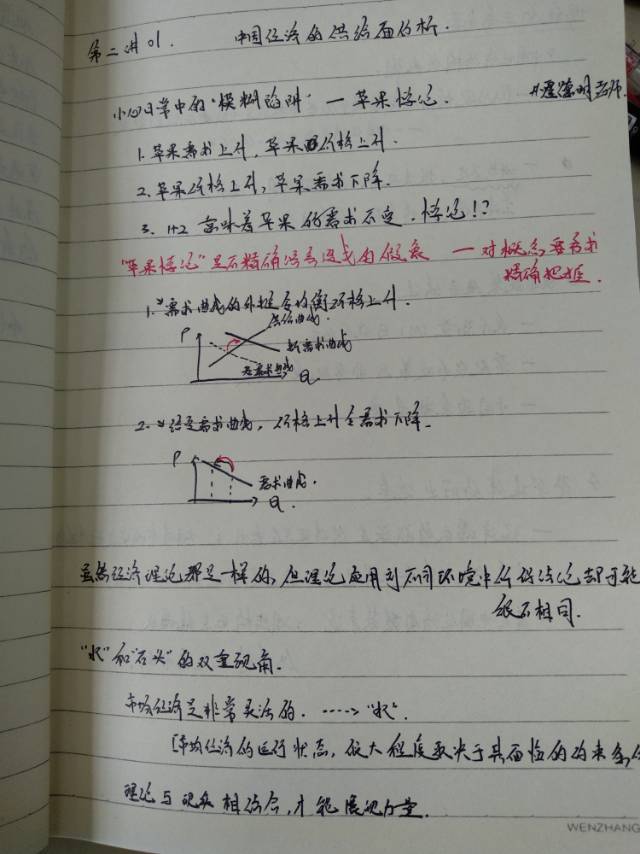 第二讲01. 中国经济的供给面分析.
小心日常中的"模糊陷阱" — 苹果悖论.
#徐高明老师
1. 苹果需求上升, 苹果价格上升.
2. 苹果价格上升, 苹果需求下降.
3. 1+2 意味着苹果的需求不变. 悖论!?
"苹果悖论"是不精确语言造成的假象 — 对概念要寻求
精确把握.
1. 需求曲线的外推会均衡价格上升.
供给曲线.
P
新需求曲线
老需求曲线
Q
2. 给定需求曲线, 价格上升会需求下降.
P
需求曲线.
Q
虽然经济理论都是一样的, 但理论应用到不同环境中所得结论却可能
很不相同.
"水"和"石头"的双重视角.
市场经济是非常灵活的. ----> "水".
[市场经济的运行状态, 极大程度取决于其面临的约束条件
理论与现象相结合, 才能展现力量.
WENZHANG